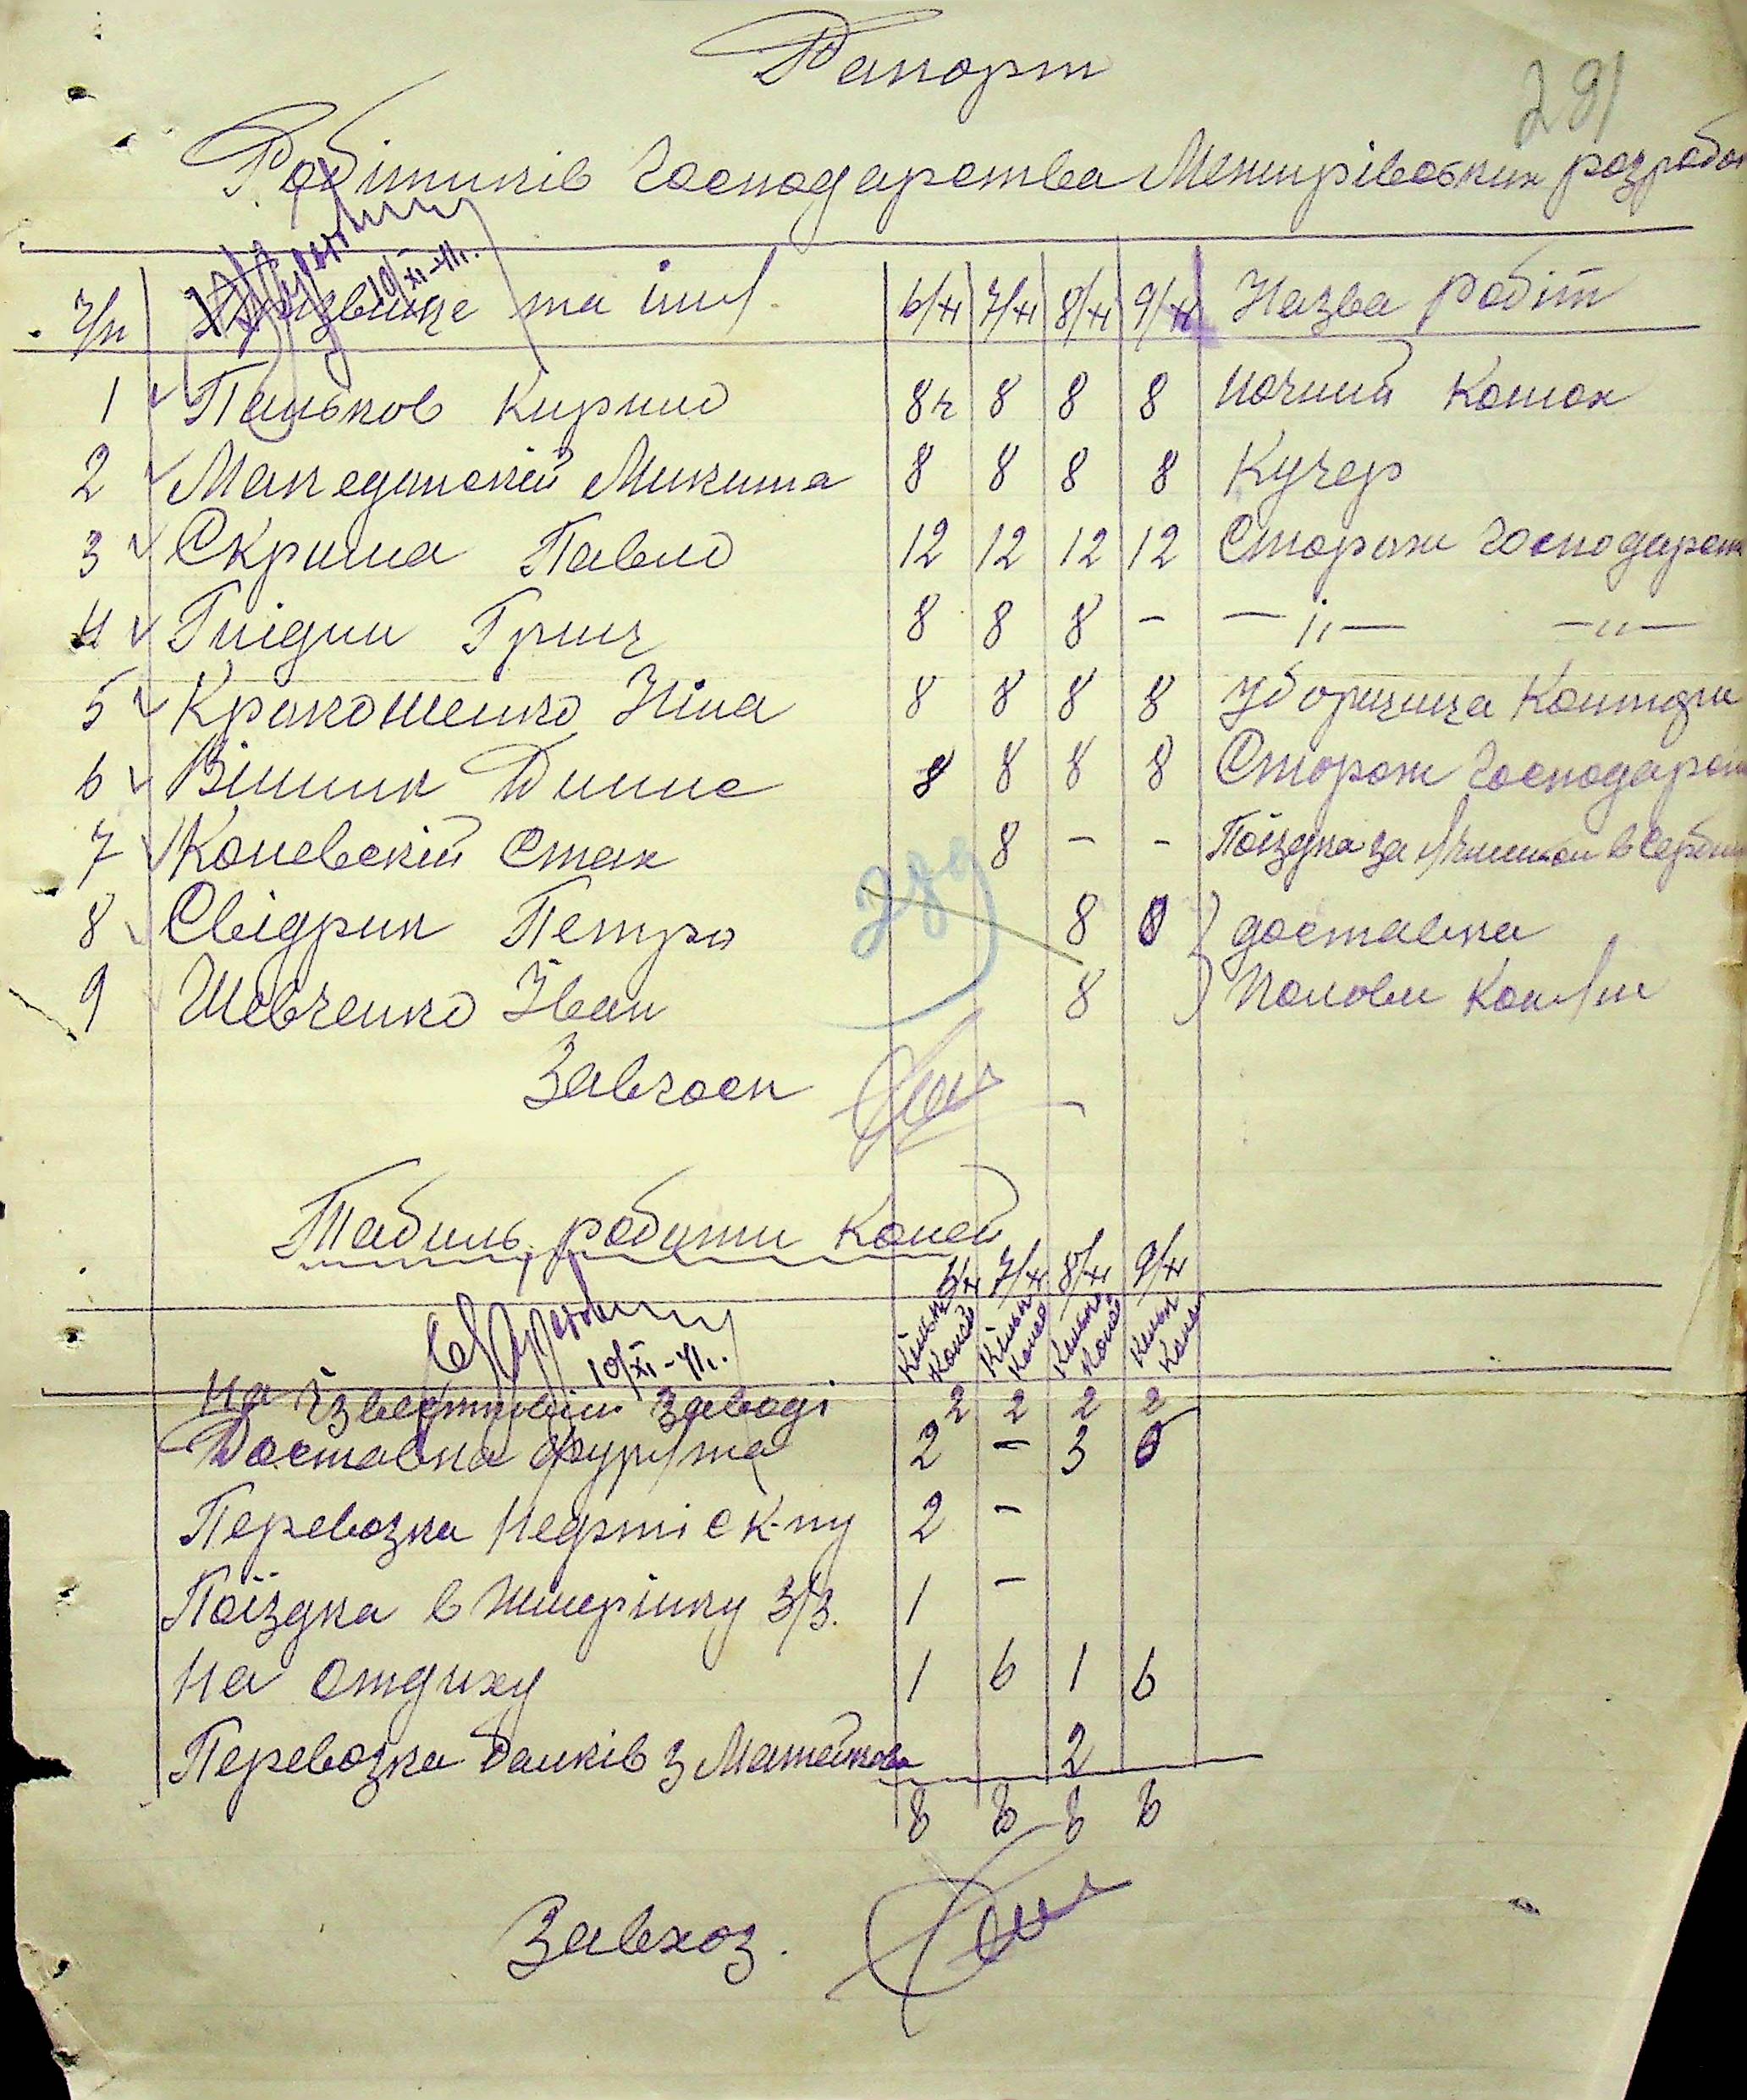 Рапорт
291
Робітників Господарства Межирівських розробок
Ч/п Прізвище та імя 6/XI 7/XI 8/XI 9/XI Назва робіт
10/XI-41.
1 Паньков Кирило 8ч 8 8 8 Ночний Конюх
2 Македонский Микита 8 8 8 8 Кучер
3 Скрипа Павло 12 12 12 12 Сторож Господарст
4 Гнідии Гриц 8 8 8 - -"- -"-
5 Крикошенко Ніна 8 8 8 8 Уборщица Контори
6 Вінник Дина 8 8 8 8 Сторож Господарст
7 Коневский Стах 8 - - Поїздка за в
8 Свідрик Петро 8 0 доставка
9 Шевченко Іван 8 Полови
289
Завгосп
Табиль роботи Коней
6/XI 7/XI 8/XI 9/XI
Кільк Коней Кільк Коней Кільк Коней Кільк Коней
10/XI-41.
На Ізвестковім Заводі 2 2 2 2
Доставка фуража 2 - 3 0
Перевозка Нефти с К-пу 2 -
Поїздка в Жмерінку З/З. 1 -
На Отдиху 1 6 1 6
Перевозка Балків з Матейкова 2
8 8 8 8
Завхоз.